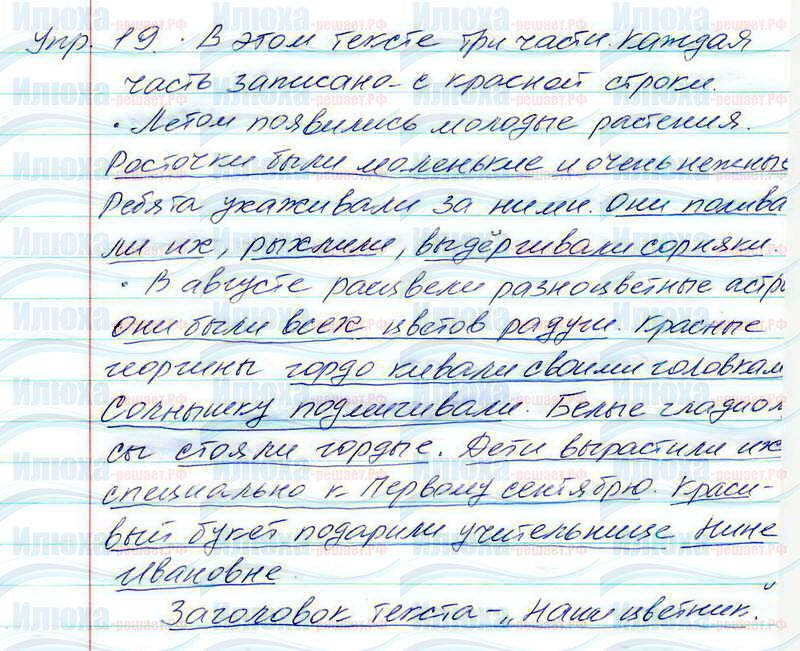 Упр. 19. · В этом тексте три части. Каждая
часть записана с красной строки.
· Летом появились молодые растения.
Росточки были маленькие и очень нежные
Ребята ухаживали за ними. Они полива
ли их, рыхлили, выдёргивали сорняки.
· В августе расцвели разноцветные астры
Они были всех цветов радуги. Красные
георгины гордо кивали своими головкам
Солнышку подмигивали. Белые гладиол
сы стояли гордые. Дети вырастили их
специально к Первому сентябрю. Краси-
вый букет подарили учительнице Нине
Ивановне.
Заголовок текста - „Наш цветник."